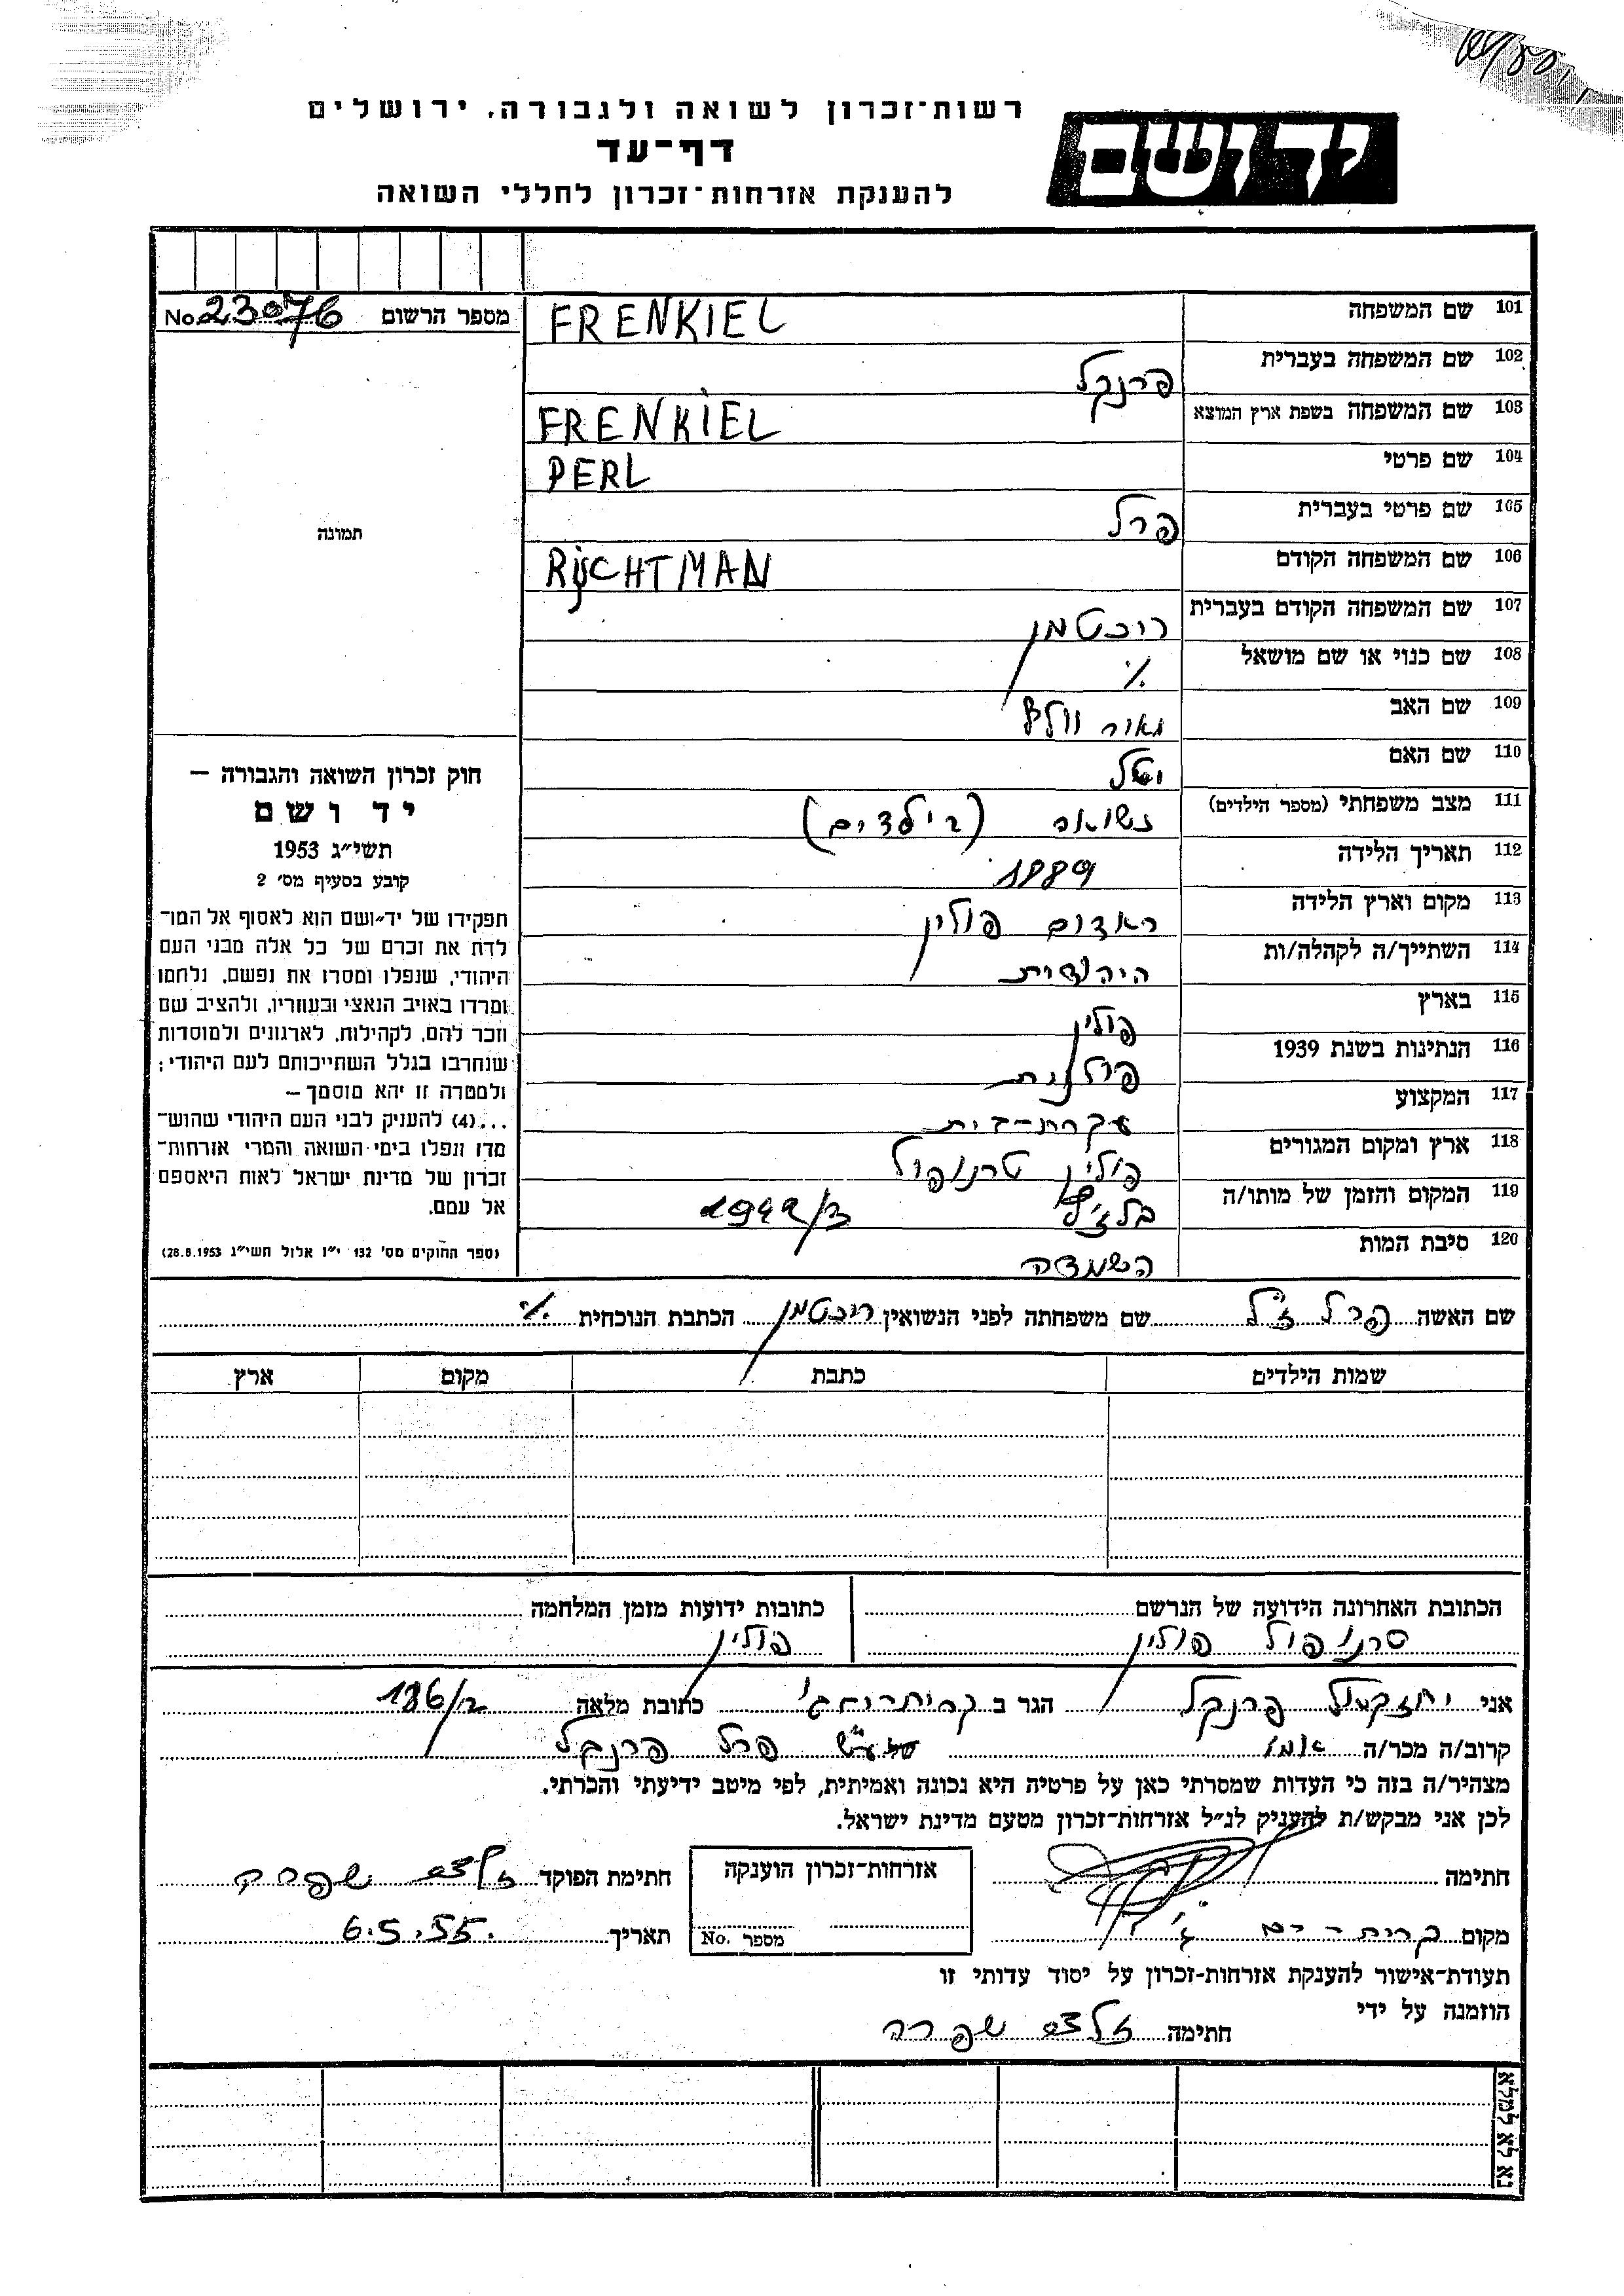 רשות־זכרון לשואה ולגבורה, ירושלים
יד ושם
דף־עד
להענקת אזרחות־זכרון לחללי השואה
No 23076 מספר הרשום
101 שם המשפחה FRENKIEL
102 שם המשפחה בעברית פרנקל
103 שם המשפחה בשפת ארץ המוצא FRENKIEL
104 שם פרטי PERL
105 שם פרטי בעברית פרל
106 שם המשפחה הקודם RYCHTMAN
107 שם המשפחה הקודם בעברית ריכטמן
108 שם כנוי או שם מושאל ./.
109 שם האב מאיר וולף
110 שם האם יטל
111 מצב משפחתי (מספר הילדים) נשואה
112 תאריך הלידה 1889
113 מקום וארץ הלידה ראדום פולין
114 השתייך/ה לקהלה/ות היהודית
115 בארץ פולין
116 הנתינות בשנת 1939 פולנית
117 המקצוע עקרת-בית
118 ארץ ומקום המגורים פולין טרנופול
119 המקום והזמן של מותו/ה בלז'ץ 1942
120 סיבת המות השמדה
תמונה
חוק זכרון השואה והגבורה –
יד ושם
תשי״ג 1953
קובע בסעיף מס׳ 2
תפקידו של יד־ושם הוא לאסוף אל המו־
לדת את זכרם של כל אלה מבני העם
היהודי, שנפלו ומסרו את נפשם, נלחמו
ומרדו באויב הנאצי ובעוזריו, ולהציב שם
וזכר להם, לקהילות, לארגונים ולמוסדות
שנחרבו בגלל השתייכותם לעם היהודי;
ולמטרה זו יהא מוסמך –
...(4) להעניק לבני העם היהודי שהוש־
מדו ונפלו בימי השואה והמרי אזרחות־
זכרון של מדינת ישראל לאות היאספם
אל עמם.
(ספר החוקים מס׳ 132 י״ז אלול תשי״ג 28.8.1953)
שם האשה פרל ז"ל שם משפחתה לפני הנשואין ריכטמן הכתבת הנוכחית ./.
שמות הילדים כתבת מקום ארץ
הכתובת האחרונה הידועה של הנרשם
טרנופול פולין
כתובות ידועות מזמן המלחמה
פולין
אני יחזקאל פרנקל הגר ב כתובת מלאה 186/2
קרוב/ה מכר/ה אמו של פרל פרנקל
מצהיר/ה בזה כי העדות שמסרתי כאן על פרטיה היא נכונה ואמיתית, לפי מיטב ידיעתי והכרתי.
לכן אני מבקש/ת להעניק לנ״ל אזרחות־זכרון מטעם מדינת ישראל.
חתימה
אזרחות־זכרון הוענקה
מספר No.
חתימת הפוקד שפרה
מקום קרית-ים ג'
תאריך 6.5.55.
תעודת־אישור להענקת אזרחות־זכרון על יסוד עדותי זו
הוזמנה על ידי
חתימה שפרה
נא לא למלא